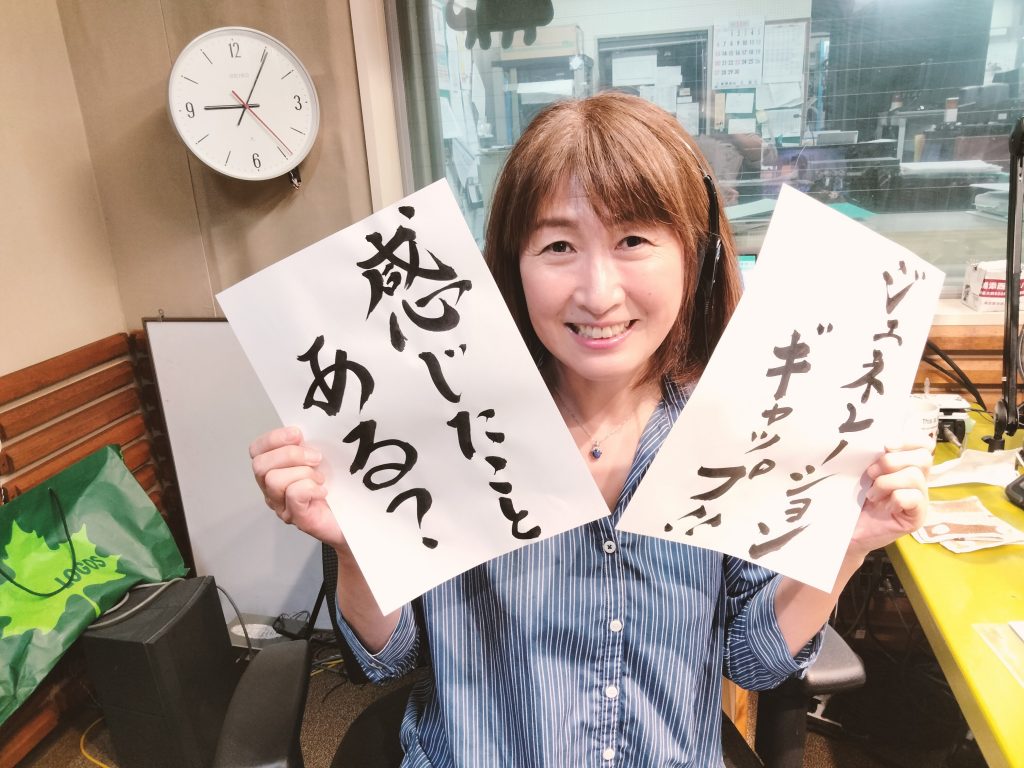 感じたこと
ある?
ジェネレーション
ギャップ!!
SEIKO
12
3
6
9